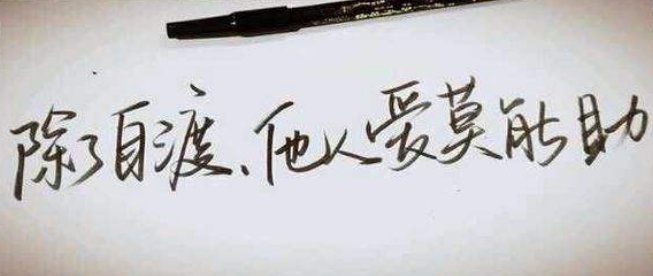 除了自渡、他人爱莫能助